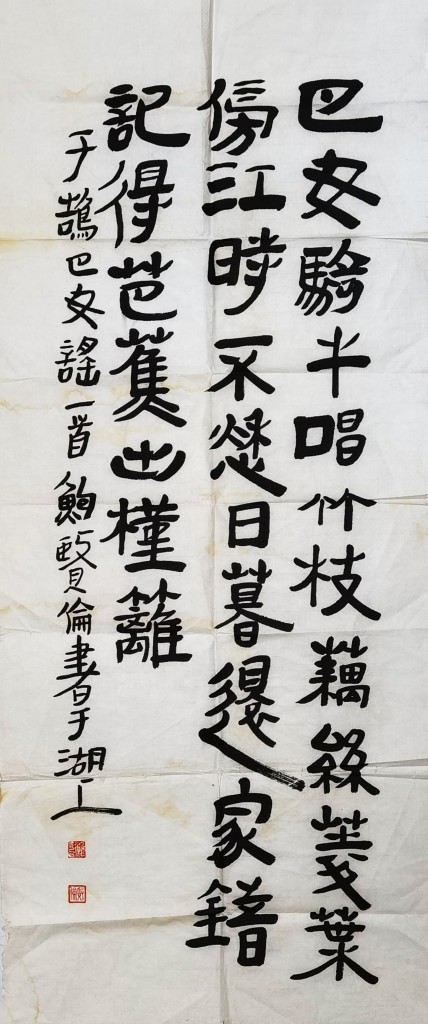 巴女騎牛唱竹枝藕絲菱葉
傍江時不愁日暮還家錯
記得芭蕉出槿籬
于鵠巴女謠一首鮑賢倫書于湖上